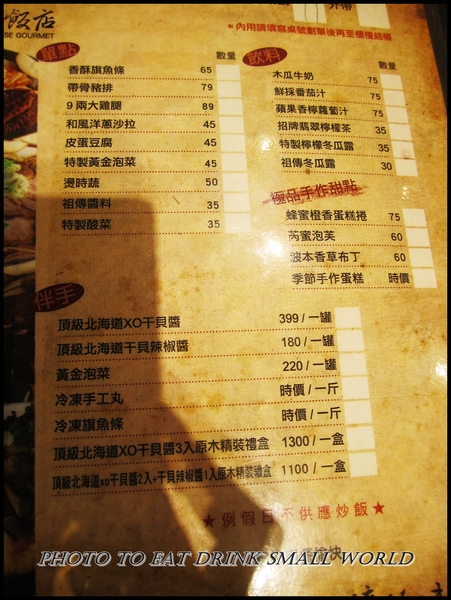 外帶
飯店
SE GOURMET
*內用請填寫桌號劃單後再至櫃檯結帳
單點 數量
香酥旗魚條 65
帶骨豬排 79
9兩大雞腿 89
和風洋蔥沙拉 45
皮蛋豆腐 45
特製黃金泡菜 45
燙時蔬 50
祖傳醬料 35
特製酸菜 35
飲料 數量
木瓜牛奶 75
鮮採番茄汁 75
蘋果香檸蘿蔔汁 75
招牌翡翠檸檬茶 35
特製檸檬冬瓜露 35
祖傳冬瓜露 30
極品手作甜點
蜂蜜橙香蛋糕捲 75
芮蜜泡芙 60
波本香草布丁 60
季節手作蛋糕 時價
伴手
頂級北海道XO干貝醬 399/一罐
頂級北海道干貝辣椒醬 180/一罐
黃金泡菜 220/一罐
冷凍手工丸 時價/一斤
冷凍旗魚條 時價/一斤
頂級北海道XO干貝醬3入原木精裝禮盒 1300/一盒
頂級北海道xo干貝醬2入+干貝辣椒醬1入原木精裝禮盒 1100/一盒
★例假日不供應炒飯★
愉快
PHOTO TO EAT DRINK SMALL WORLD